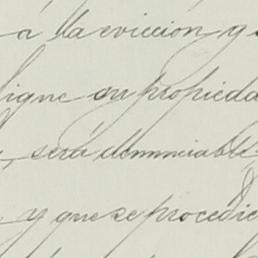 á la eviccion, y
ligue su propieda
, será denunciable
y que se procedie